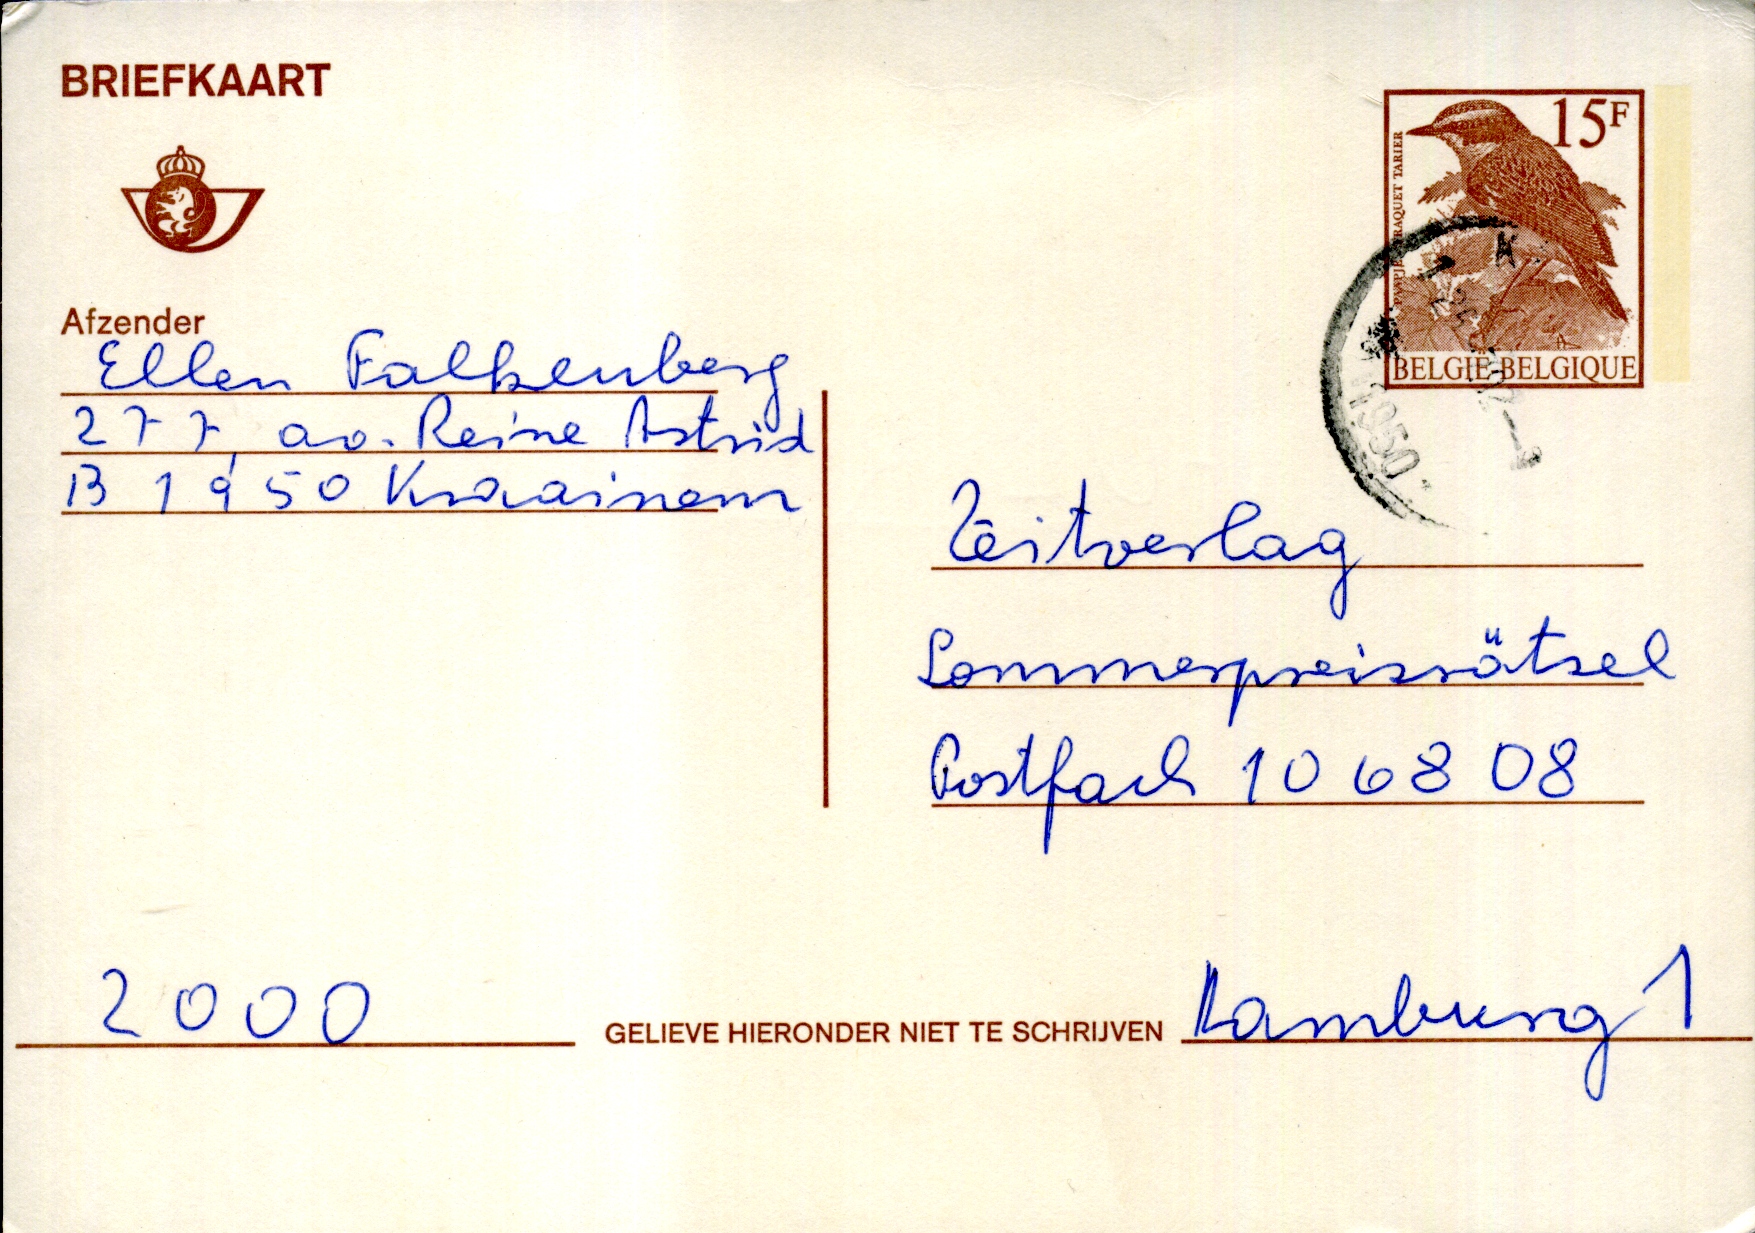 BRIEFKAART
15F
TRAQUET TARIER
BELGIE-BELGIQUE
1950
Afzender
Ellen Falkenberg
277, av. Reine Astrid
B 1950 Kraainem
Zeitverlag
Sommerpreisrätsel
Postfach 10 68 08
2000
GELIEVE HIERONDER NIET TE SCHRIJVEN
Hamburg 1